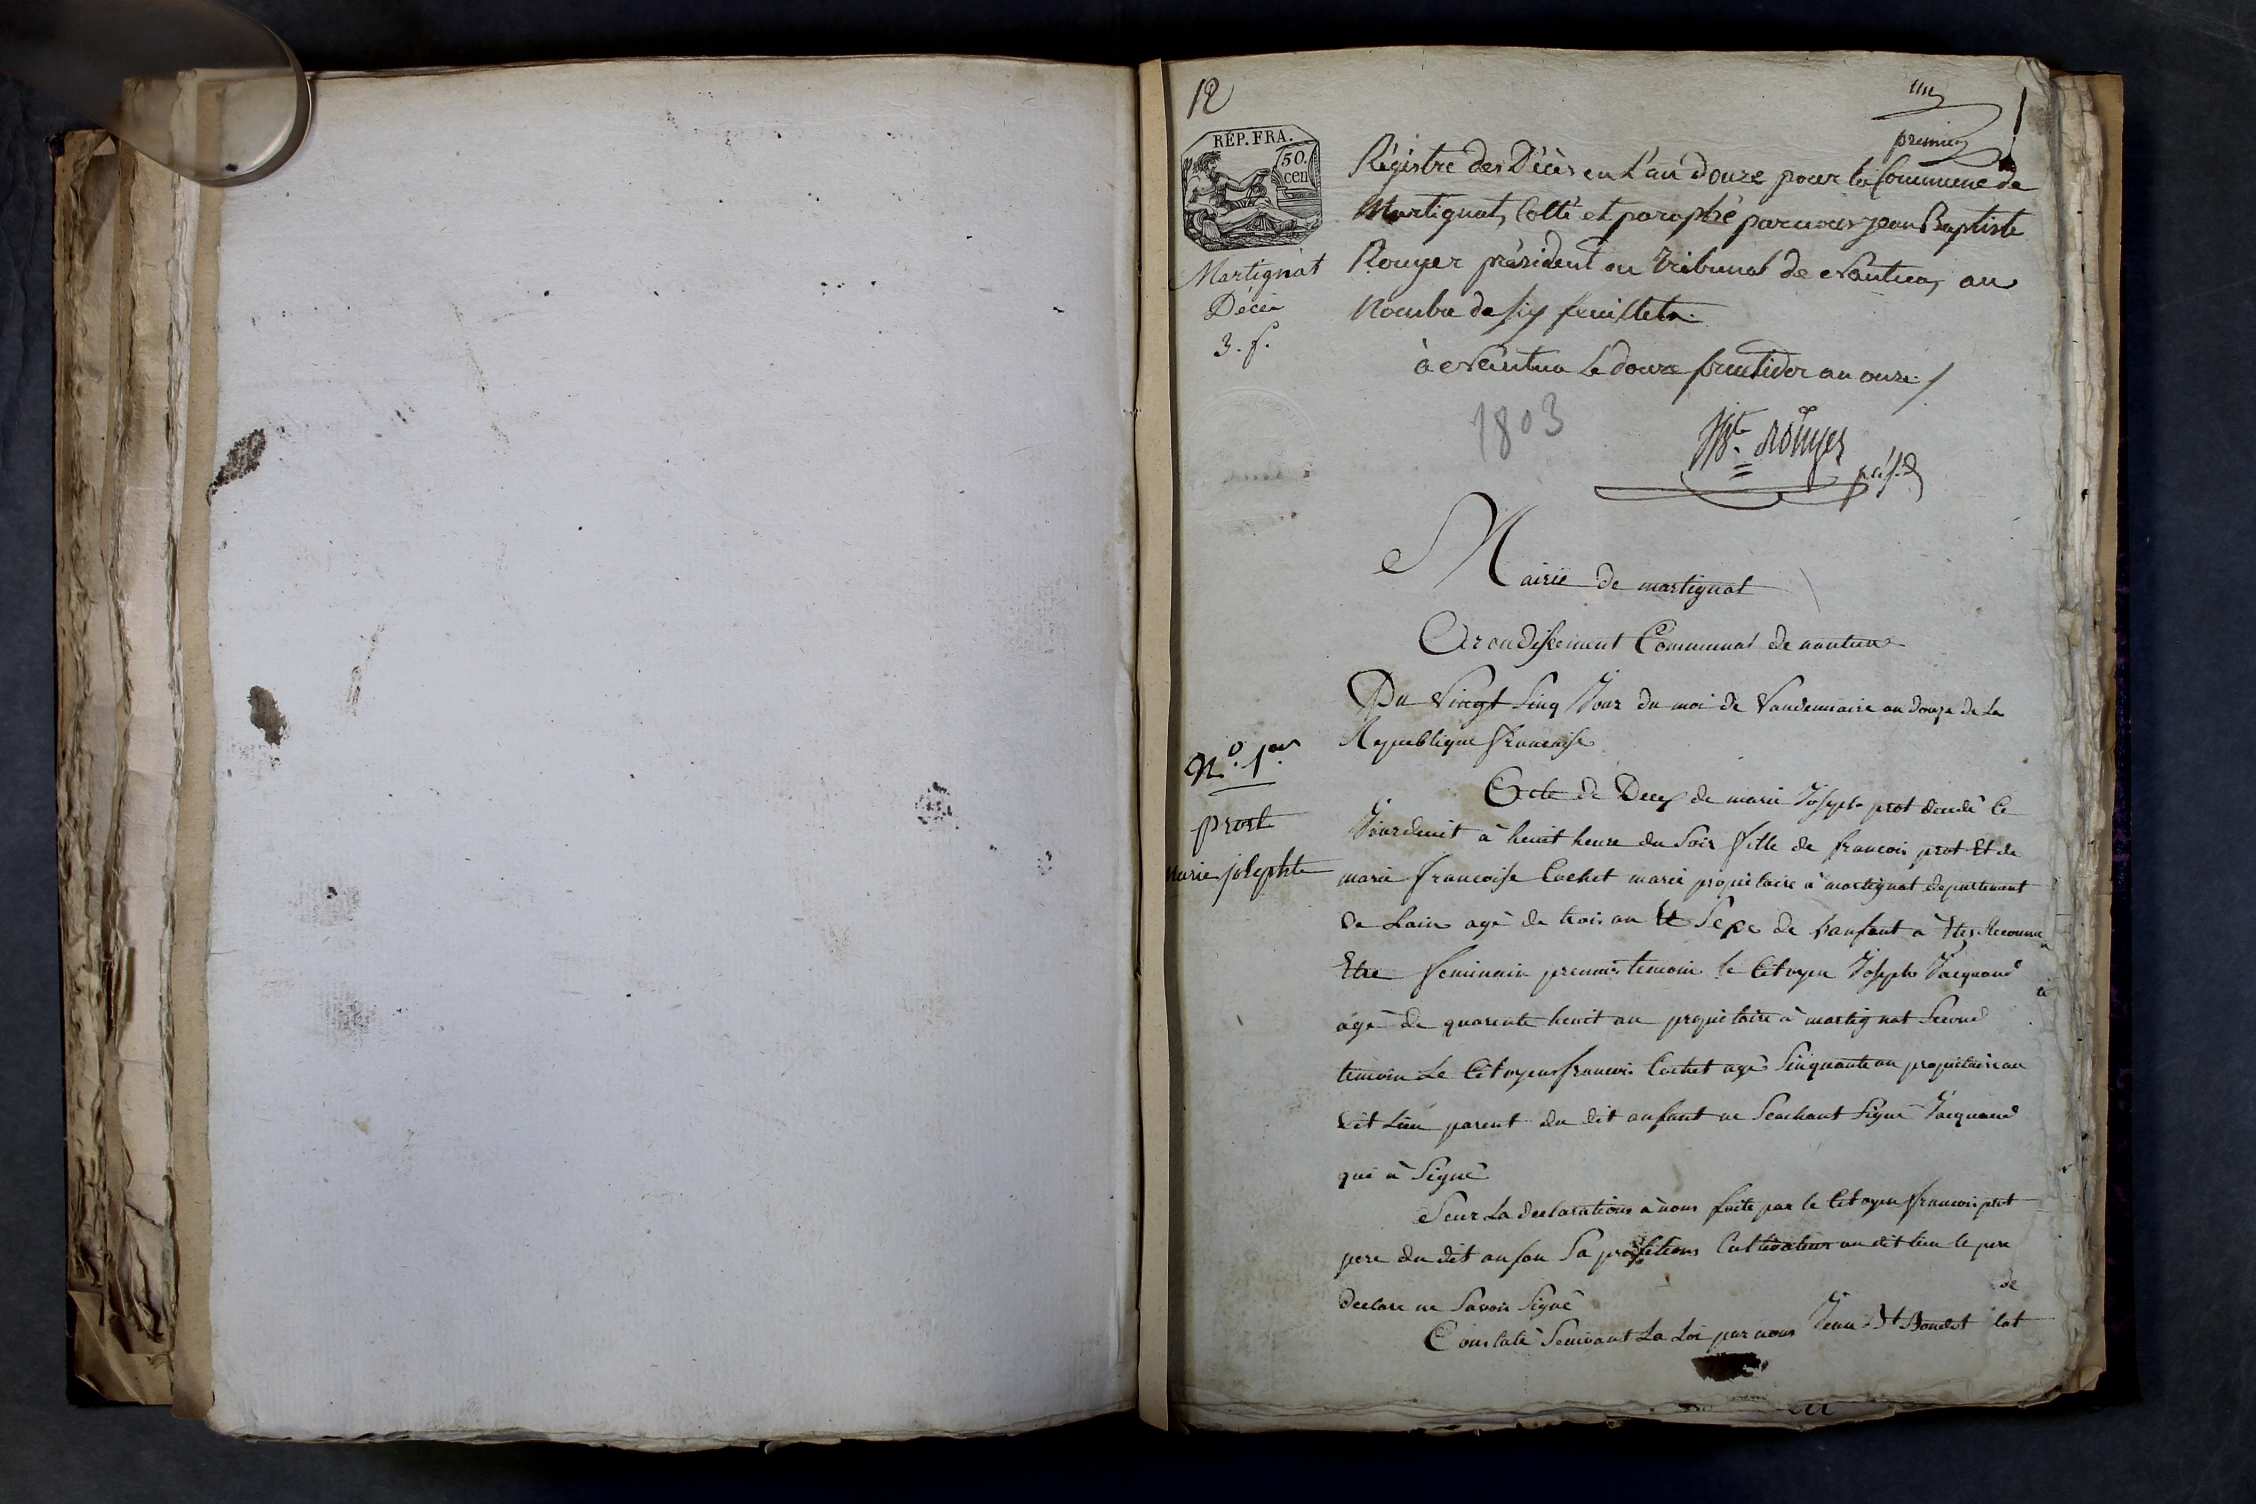 12
un
premier
1
RÉP. FRA.
50.
cen
Martignat
Décès
3. f.
Régistre des Décès en L'an douze pour la Commune de
Martignat, Cotté et paraphé par nous Jean Baptiste
Rouyer président au tribunal de Nantua, au
Nombre de six feuillets.
à Nantua Le douze fructidor an onze /
1803
JBte. Rouyer
présid
Mairie de martignat
Arondissement Communal de nantua
Du Vingt Sinq Jour du moi de Vandemiaire an douze de La
Republique francaise
No. 1er.
prost
marie josephte
Acte de Deces de marie Joseph prot décedé le
Jourduit à heuit heure du Soir fille de francois prot Et de
marie francoise Cochet marié propiétaire à martignat departement
de Lain agé de trois an Le Sexe de Lanfant à Eté Reconnu
Etre feminain premier temoin le Citoyen Joseph Jacquand
agé de quarente heuit an propietaire à martignat Second
à
temoin Le Citoyen francois Cochet agé Sinquante an propietaire au
dit Lieu parent du dit anfant ne Seachant Signé Jacquand
qui à Signé
Seur La declarations à nous faite par le Citoyen francois prot
pere du dit anfan Sa profetions Cultivateur au dit lieu le pere
declare ne Savoir Signé
de
Constaté Seuivant La Loi par nous Jean Bt Bondet lat